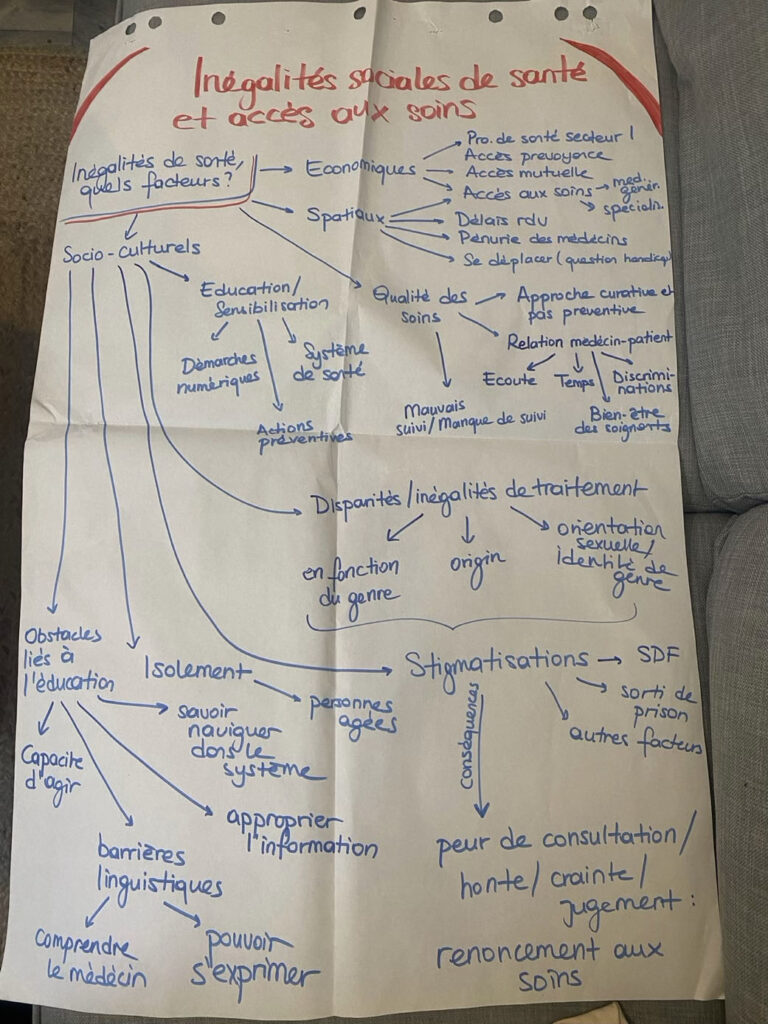 Inégalités sociales de santé
et accès aux soins
Inégalités de santé,
quels facteurs?
Economiques
Pro. de santé secteur 1
Accès prevoyance
Accès mutuelle
Accès aux soins
med.
génér.
spécialis.
Spatiaux
Délais rdv
Pénurie des médecins
Se déplacer (question handicap)
Socio-culturels
Education/
Sensibilisation
Démarches
numériques
Système
de santé
Actions
préventives
Qualité des
soins
Approche curative et
pas preventive
Relation médecin-patient
Ecoute
Temps
Discrimi-
nations
Bien-être
des soignants
Mauvais
suivi/Manque de suivi
Disparités/inégalités de traitement
en fonction
du genre
origin
orientation
sexuelle/
identité de
genre
Obstacles
liés à
l'éducation
Isolement
personnes
agées
Stigmatisations
SDF
sorti de
prison
autres facteurs
Conséquences
Capacite
d'agir
savoir
naviguer
dans le
système
approprier
l'information
barrières
linguistiques
Comprendre
le médecin
pouvoir
s'exprimer
peur de consultation/
honte/ crainte/
jugement:
renoncement aux
soins